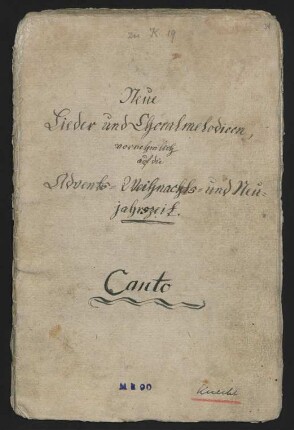 zu K 19
Neue
Lieder und Choralmelodieen,
vornehmlich
auf die
Advents- Weihnachts- und Neu-
jahrszeit.
Canto
M B 90